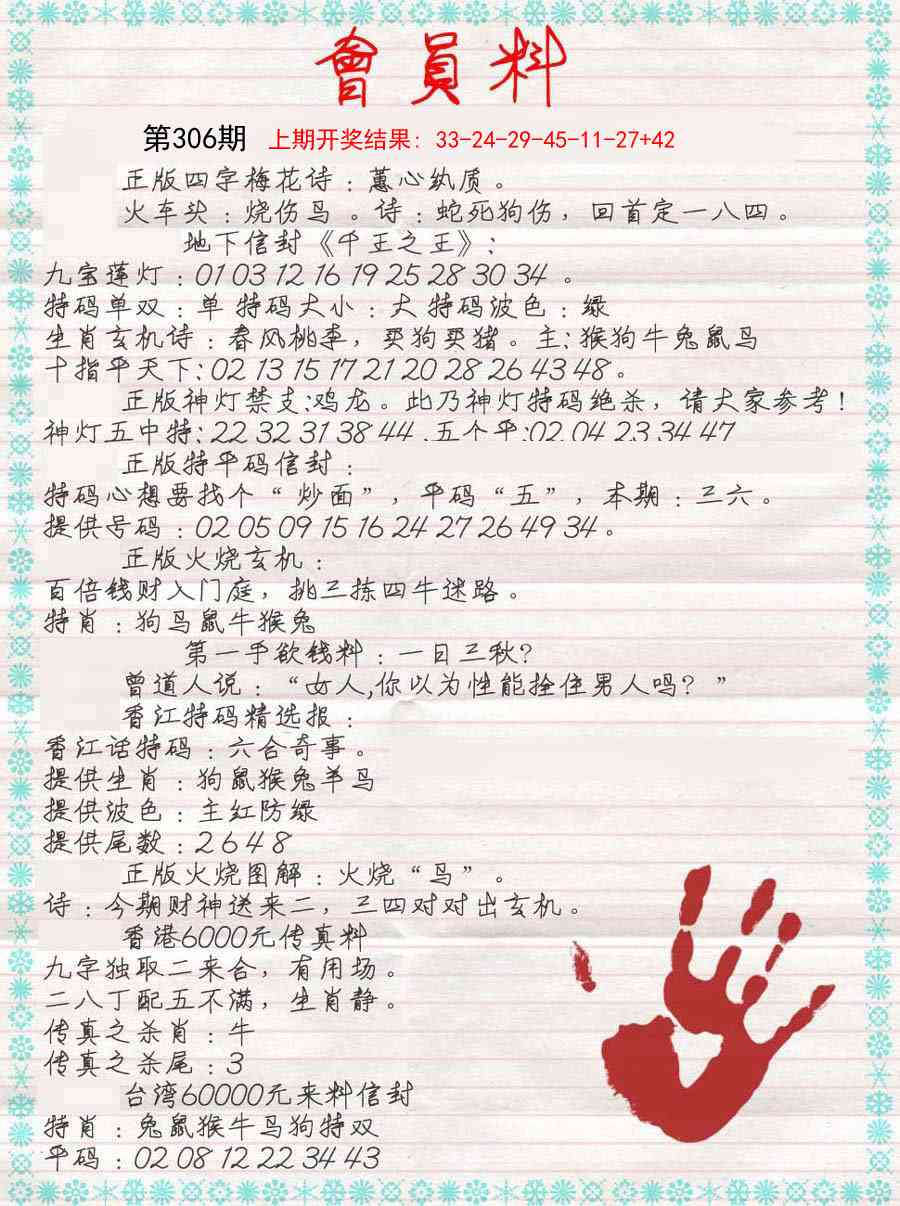 會員料
第306期 上期开奖结果: 33-24-29-45-11-27+42
正版四字梅花诗：蕙心纨质。
火车头：烧伤鸟 。诗：蛇死狗伤，回首定一八四。
地下信封《千王之王》：
九宝莲灯：01 03 12 16 19 25 28 30 34 。
特码单双：单 特码大小：大 特码波色：绿
生肖玄机诗：春风桃李，买狗买猪。主: 猴狗牛兔鼠鸟
十指平天下: 02 13 15 17 21 20 28 26 43 48。
正版神灯禁支:鸡龙。此乃神灯特码绝杀，请大家参考！
神灯五中特: 22 32 31 38 44 .五个平:02 04 23 34 47
正版特平码信封：
特码心想要找个“ 炒面”，平码“五”，本期：三六。
提供号码：02 05 09 15 16 24 27 26 49 34。
正版火烧玄机：
百倍钱财入门庭，挑三拣四牛迷路。
特肖：狗鸟鼠牛猴兔
第一手欲钱料：一日三秋?
曾道人说：“女人,你以为性能拴住男人吗？”
香江特码精选报：
香江话特码：六合奇事。
提供生肖：狗鼠猴兔羊鸟
提供波色：主红防绿
提供尾数：2 6 4 8
正版火烧图解：火烧“鸟”。
诗：今期财神送来二，三四对对出玄机。
香港6000元传真料
九字独取二来合，有用场。
二八丁配五不满，生肖静。
传真之杀肖：牛
传真之杀尾：3
台湾60000元来料信封
特肖：兔鼠猴牛鸟狗特双
平码：02 08 12 22 34 43